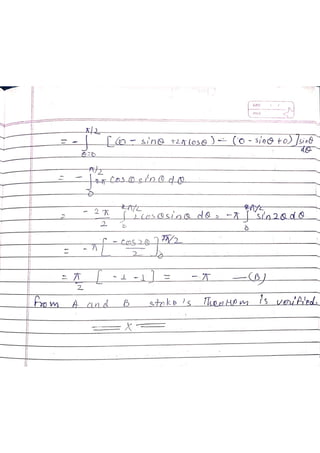 = - ∫_{θ=0}^{π/2} [(0 - sinθ + 2π cosθ) - (0 - sinθ + 0)] sinθ dθ
= - ∫_{0}^{π/2} 2π cosθ sinθ dθ
= - 2π/2 ∫_{0}^{π/2} 2 cosθ sinθ dθ = - π ∫_{0}^{π/2} sin2θ dθ
= - π [ - cos2θ / 2 ]_{0}^{π/2}
= π/2 [ -1 -1 ] = - π —(B)
from A and B stoke's Theorem is verified.
= X =